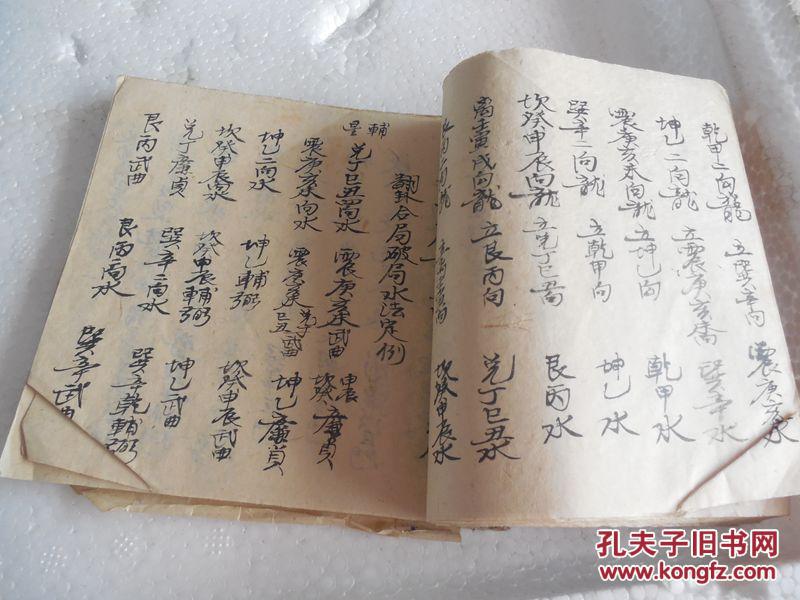 乾甲二向龍 立巽辛向 震庚亥未水
坤乙二向龍 立震庚亥未向 巽辛水
震庚亥未向龍 立坤乙向 乾甲水
巽辛二向龍 立乾甲向 坤乙水
坎癸申辰向龍 立兌丁巳丑向 艮丙水
離壬寅戌向龍 立艮丙向 兌丁巳丑水
坎癸申辰水
翻卦合局破局水法定例
輔星 兌丁巳丑向水 震庚亥未武曲
震庚亥未向水
坤乙二向水 坤乙廉貞
坎癸申辰向水 坤乙輔弼 坎癸申辰武曲
兌丁廉貞 坎癸申辰輔弼 坤乙武曲
巽辛二向水 巽辛乾輔弼
艮丙武曲 艮丙二向水 巽辛武曲
孔夫子旧书网
www.kongfz.com